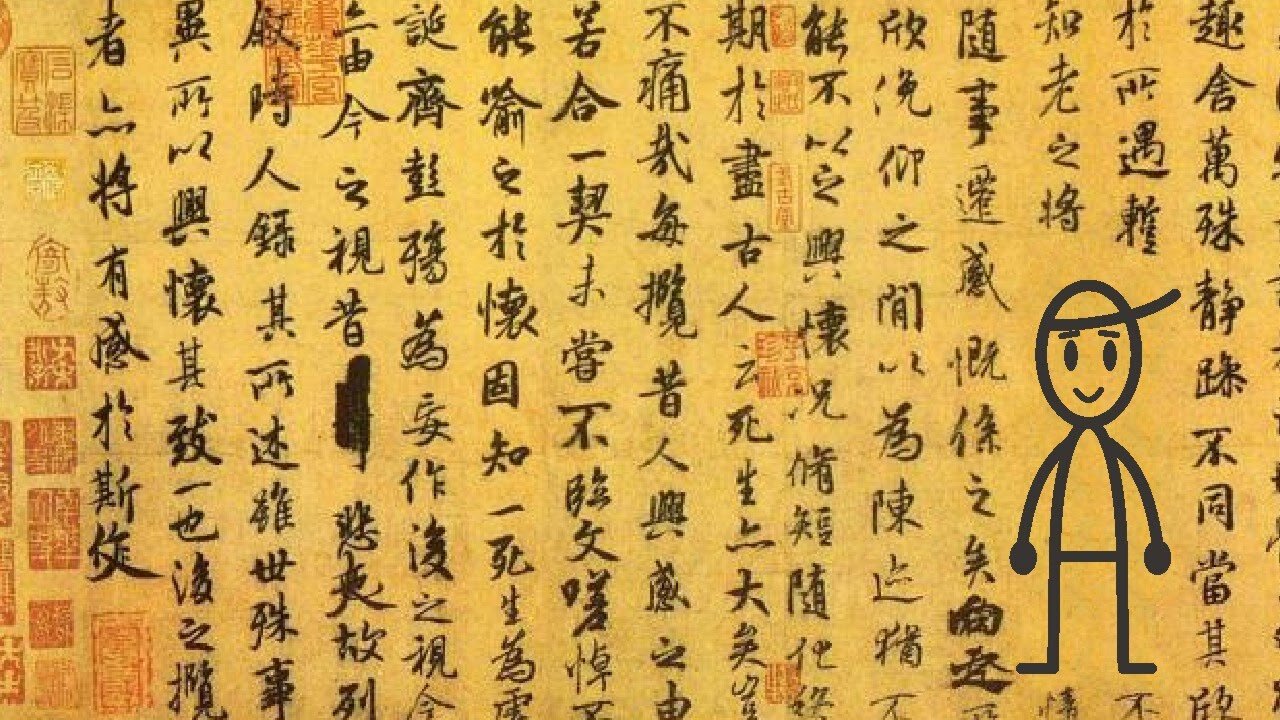 趣舍萬殊静躁不同當其欣
於所遇暫不
知老之將情
随事遷感慨係之矣向之所
欣俛仰之閒以為陳迹猶不
能不以之興懷况脩短随化終
期於盡古人云死生亦大矣豈
不痛哉每攬昔人興感之由
若合一契未嘗不臨文嗟悼不
能喻之於懷固知一死生為虚
誕齊彭殤為妄作後之視今
亦由今之視昔悲夫故列
叙時人録其所述雖世殊事
異所以興懷其致一也後之攬
者亦將有感於斯作